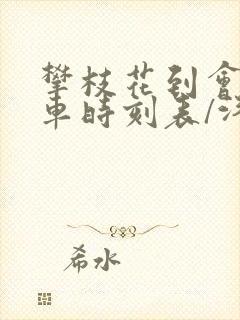 攀枝花到會
車時刻表/汽
希水